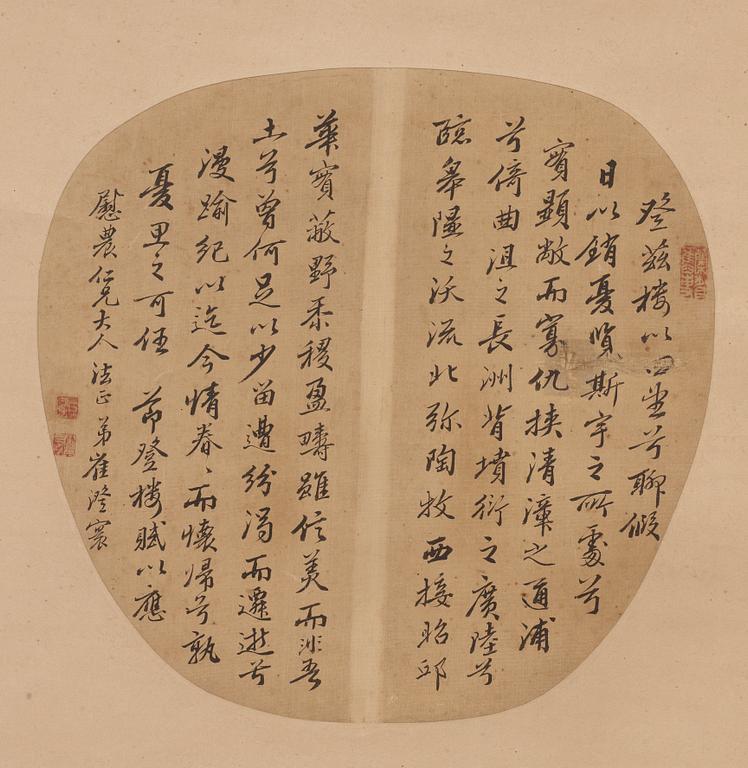 登茲楼以四望兮聊假
日以銷憂覽斯宇之所處兮
實顯敞而寡仇挾清漳之通浦
兮倚曲沮之長洲背墳衍之廣陸兮
臨皋隰之沃流北弥陶牧西接昭邱
華實蔽野黍稷盈疇雖信美而非吾
土兮曾何足以少留遭紛濁而遷逝兮
漫踰紀以迄今情眷々而懷歸兮孰
憂思之可任 節登楼賦以應
慰農仁兄大人法正 弟崔澄寰